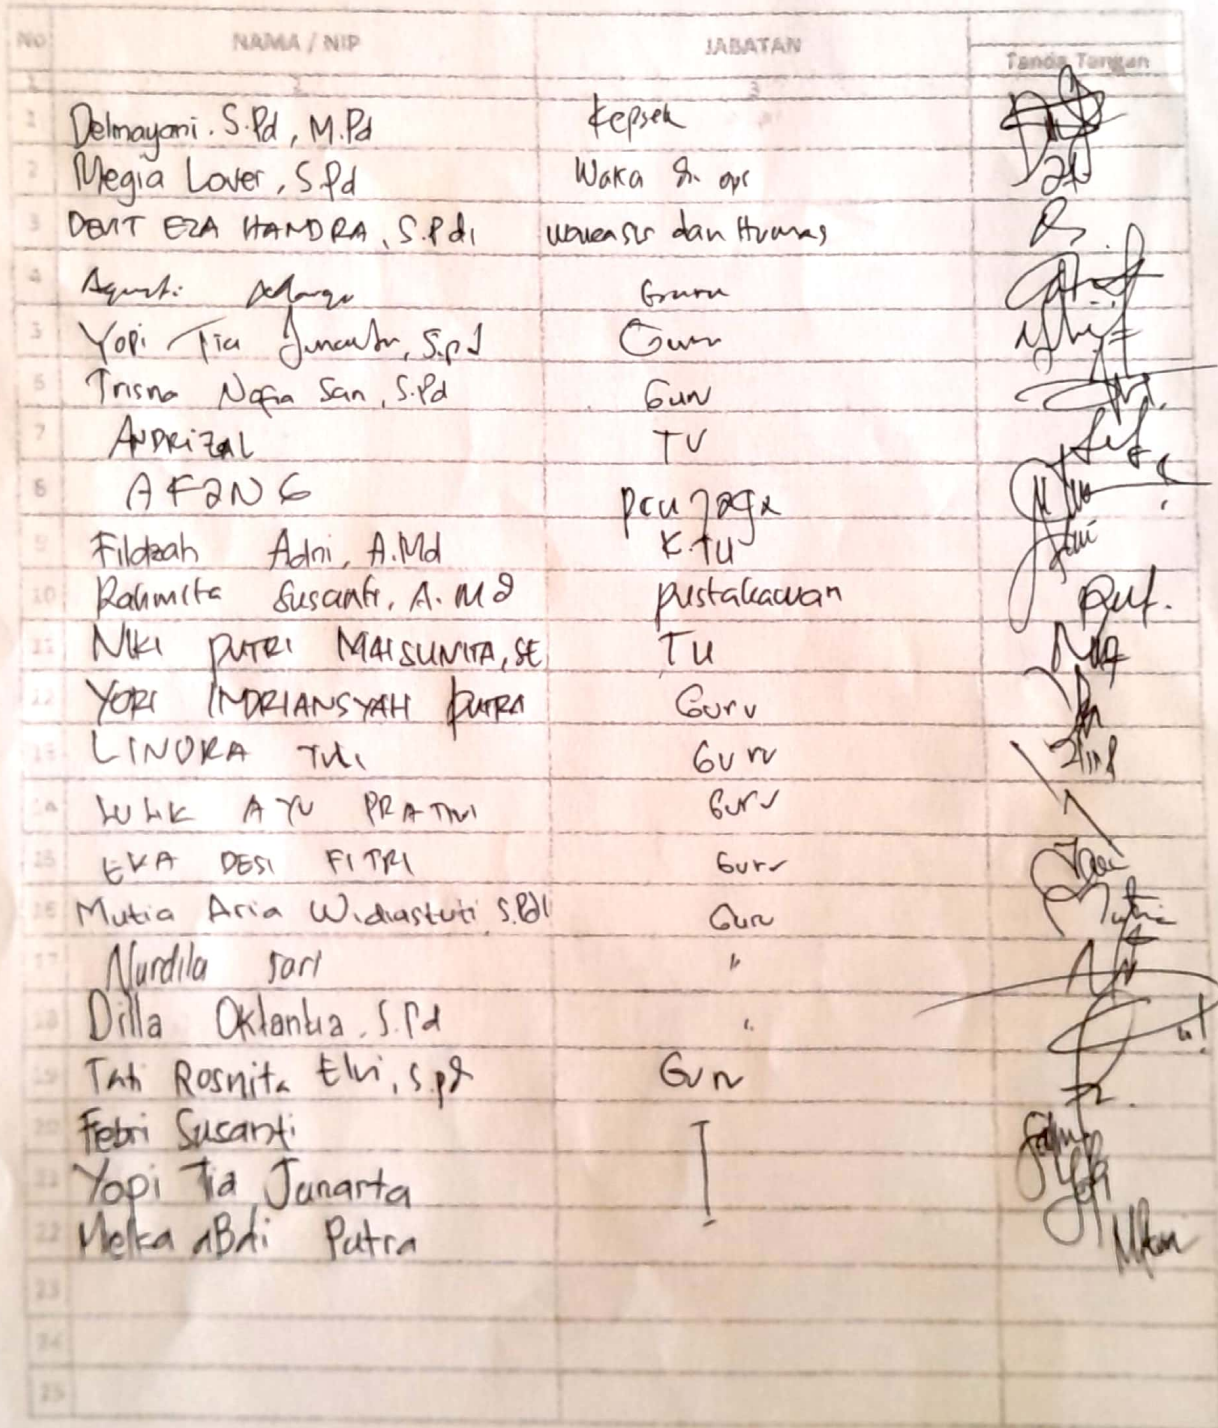 No NAMA / NIP JABATAN Tanda Tangan
1 2 3
1 Delmayani. S.Pd, M.Pd Kepsek
2 Megia Lover, S.Pd Waka & opr
3 DEVIT EZA HANDRA, S.Pdi wakasis dan Humas
4 Guru
5 Yopi Tia Junarta, S.pd Guru
6 Trisna Nofia Sari, S.Pd Guru
7 ANDRIZAL TU
8 AFANG penjaga
9 Fildzah Adni, A.Md K.TU
10 Rahmita Susanti, A.Md pustakawan
11 NIKI PUTRI MAISUNITA, SE TU
12 YORI INDRIANSYAH PUTRA Guru
13 LINORA Guru
14 AYU PRATIWI Guru
15 EKA DESI FITRI Guru
16 Mutia Aria Widiastuti S.Pdi Guru
17 Nurdila sari "
18 Dilla Oktantia, S.Pd "
19 Tati Rosnita Elvi, S.pd Guru
20 Febri Susanti
21 Yopi Tia Junarta
22 Melka aBdi Putra
23
24
25